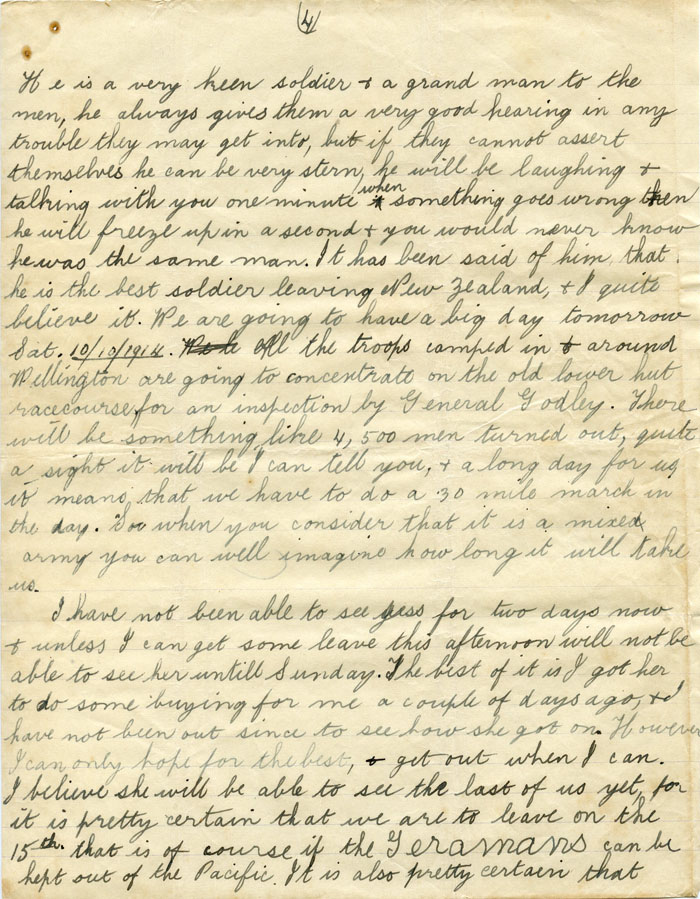 (4)
He is a very keen soldier & a grand man to the
men, he always gives them a very good hearing in any
trouble they may get into, but if they cannot assert
themselves he can be very stern, he will be laughing &
talking with you one minute when something goes wrong then
he will freeze up in a second & you would never know
he was the same man. It has been said of him that
he is the best soldier leaving New Zealand, & I quite
believe it. We are going to have a big day tomorrow
Sat. 10/10/1914. All the troops camped in & around
Wellington are going to concentrate on the old lower hut
racecourse for an inspection by General Godley. There
will be something like 4,500 men turned out, quite
a sight it will be I can tell you, & a long day for us,
it means that we have to do a 30 mile march in
the day. So when you consider that it is a mixed
army you can well imagine how long it will take
us.
I have not been able to see Jess for two days now
& unless I can get some leave this afternoon will not be
able to see her untill Sunday. The best of it is I got her
to do some buying for me a couple of days ago, & I
have not been out since to see how she got on. However
I can only hope for the best, & get out when I can.
I believe she will be able to see the last of us yet, for
it is pretty certain that we are to leave on the
15th. that is of course if the Geramans can be
kept out of the Pacific. It is also pretty certain that